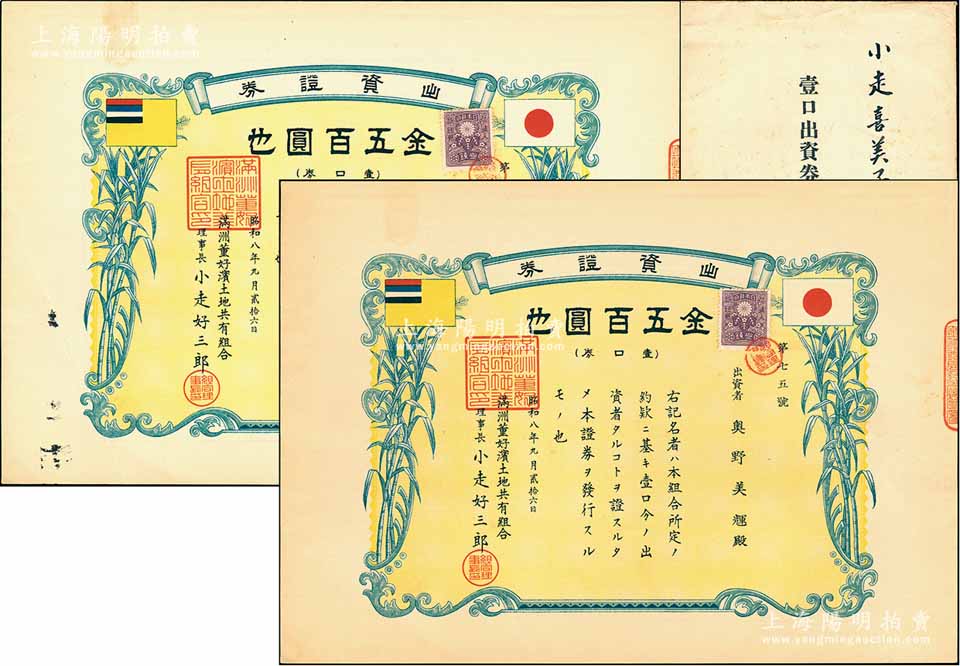 上海陽明拍賣
www.yangmingauction.com
出資證券
金五百圓也
(壹口券)
第
昭和八年九月貳拾六日
滿洲董好濱土地共有組合
理事長 小走好三郎
小走喜美
壹口出資券
出資證券
金五百圓也
(壹口券)
第七五號
出資者 奥野美 殿
右記名者ハ本組合所定ノ
約款ニ基キ壹口分ノ出
資者タルコトヲ證スルタ
メ本證券ヲ發行スル
モノ也
昭和八年九月貳拾六日
滿洲董好濱土地共有組合
理事長 小走好三郎
上海陽明拍賣
www.yangmingauction.com
上海陽明拍賣
www.yangmingauction.com